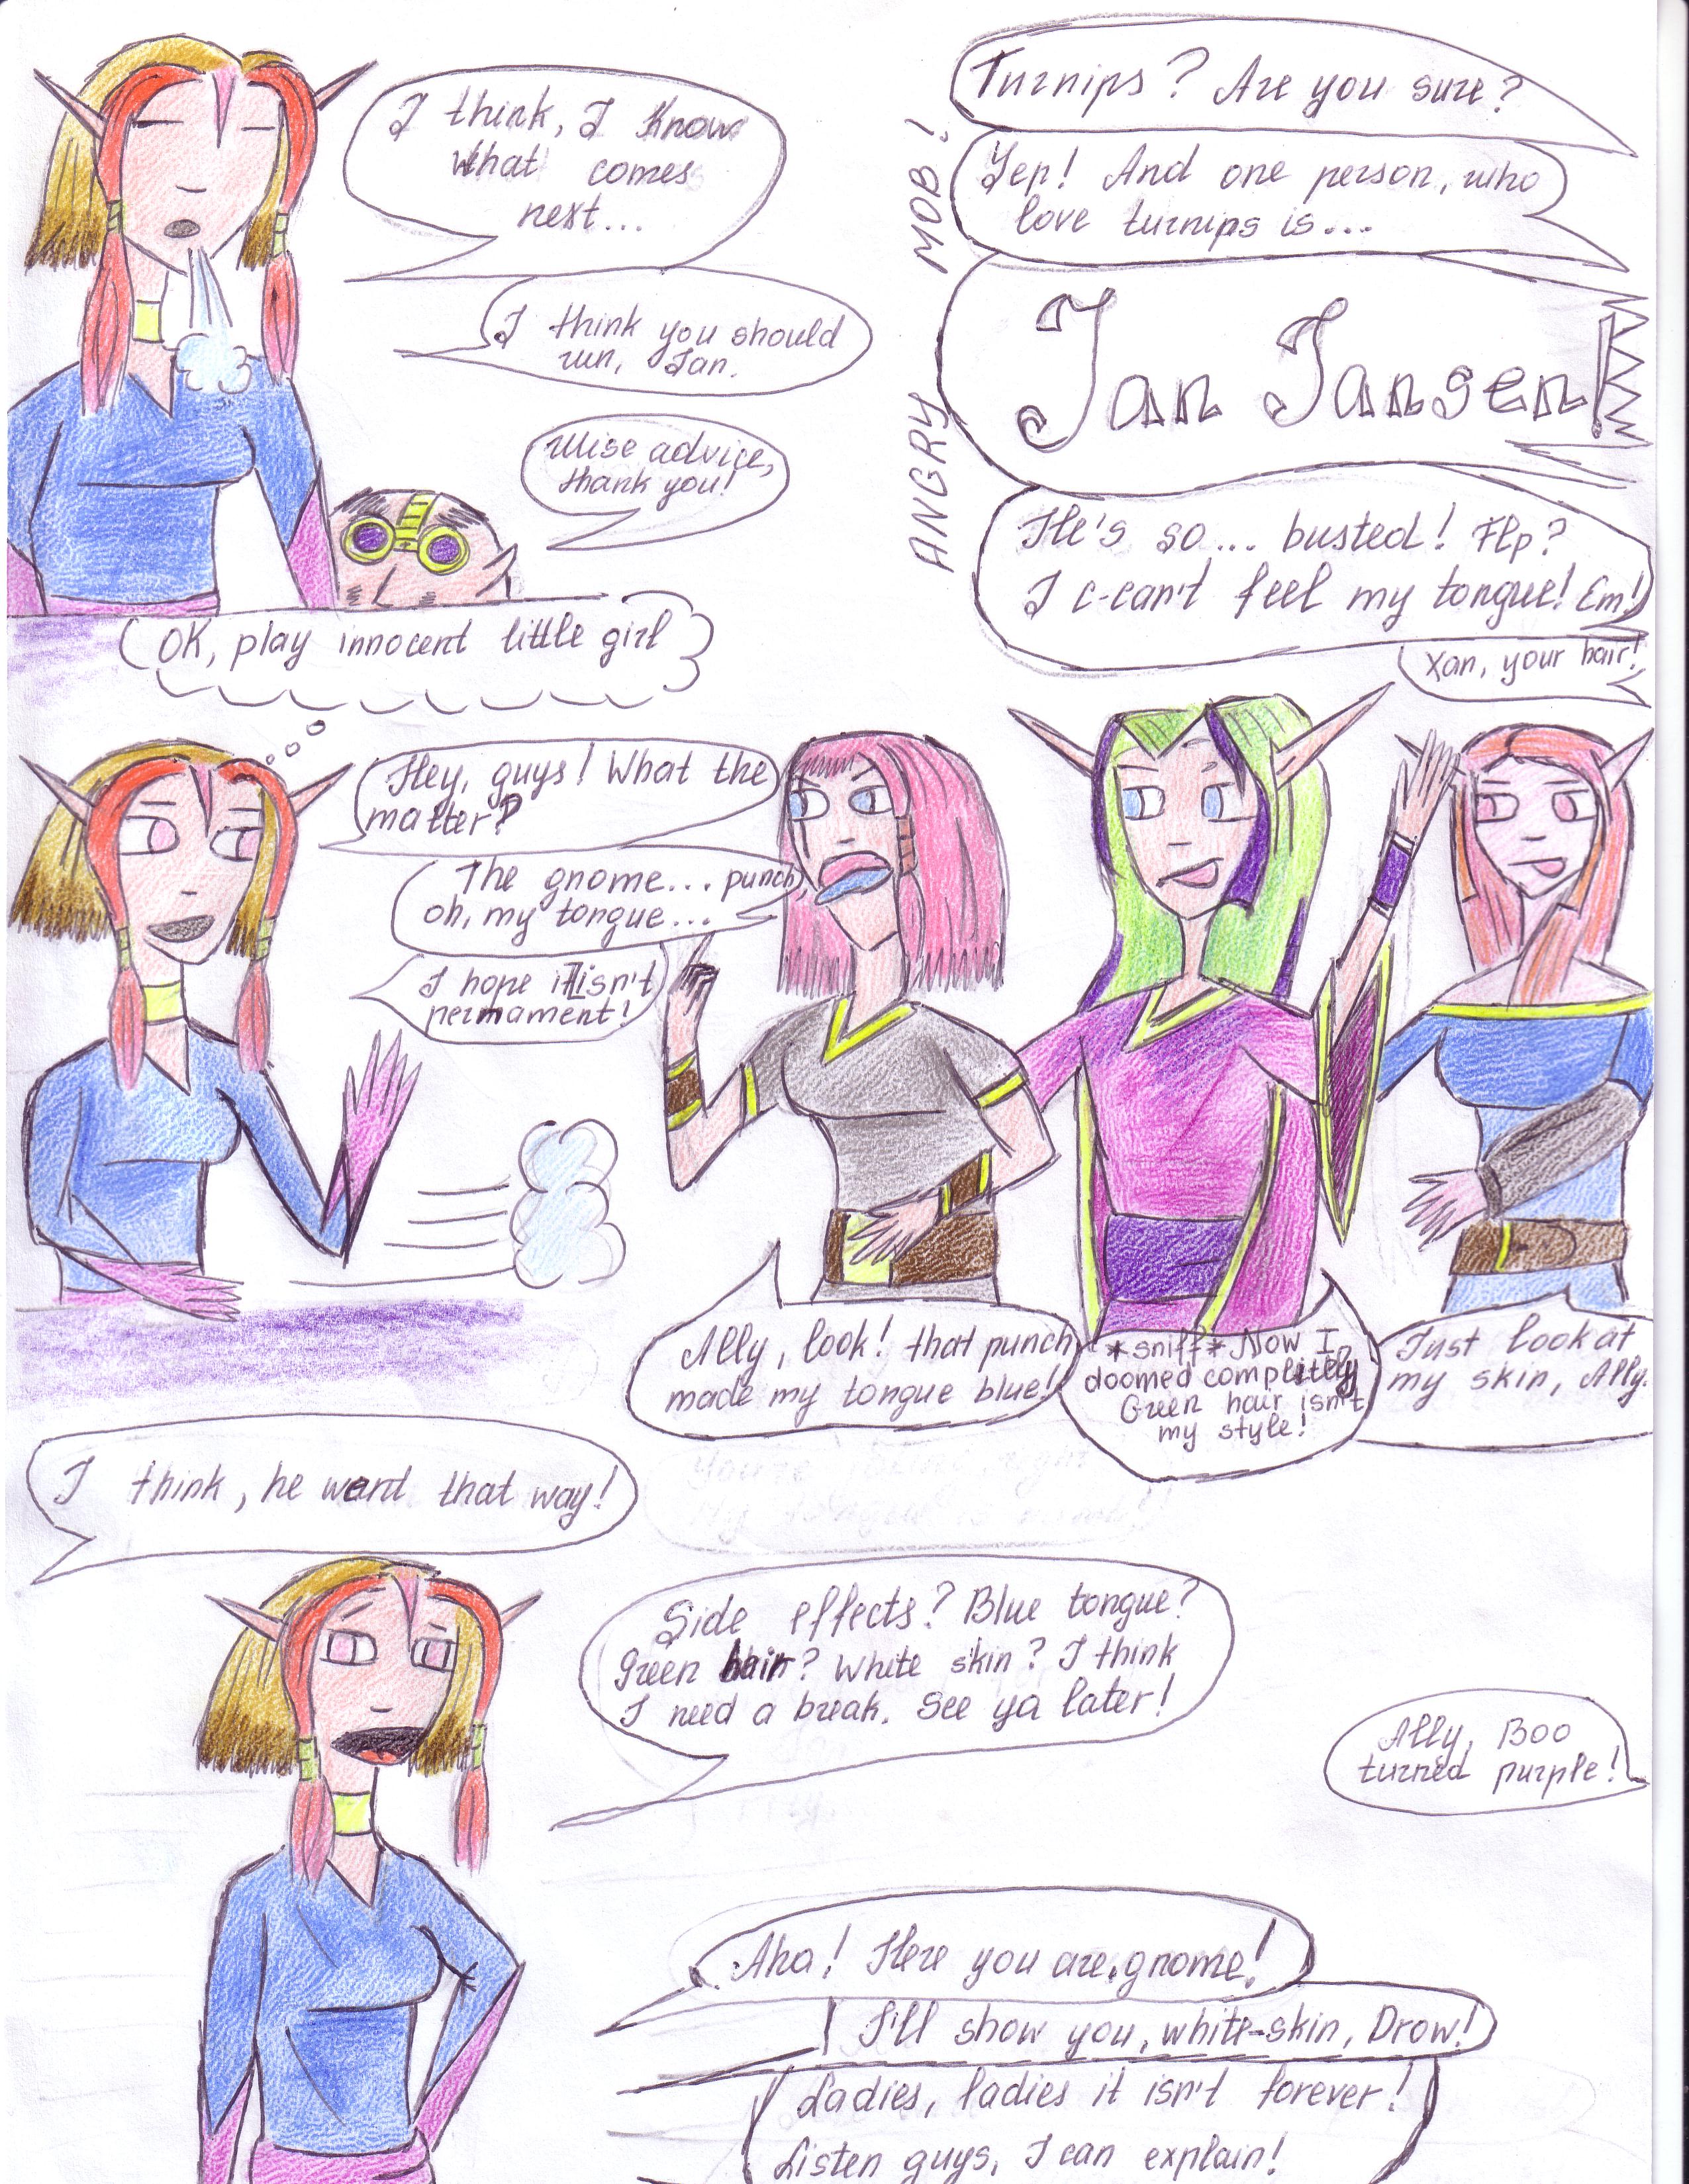 I think, I know
what comes
next...
I think you should
run, Jan.
Wise advice,
thank you!
ANGRY MOB!
Turnips? Are you sure?
Yep! And one person, who
love turnips is...
Jan Jansen!
He's so... busted! Flp?
I c-can't feel my tongue! Em!
Xan, your hair!
OK, play innocent little girl
Hey, guys! What the
matter?
The gnome... punch,
oh, my tongue...
I hope it isn't
permament!
Ally, look! that punch
made my tongue blue!
*sniff* Now I
doomed completely
Green hair isn't
my style!
Just look at
my skin, Ally.
I think, he went that way!
Side effects? Blue tongue?
Green hair? White skin? I think
I need a break. See ya later!
Ally, Boo
turned purple!
Aha! Here you are, gnome!
I'll show you, white-skin, Drow!
Ladies, ladies it isn't forever!
Listen guys, I can explain!